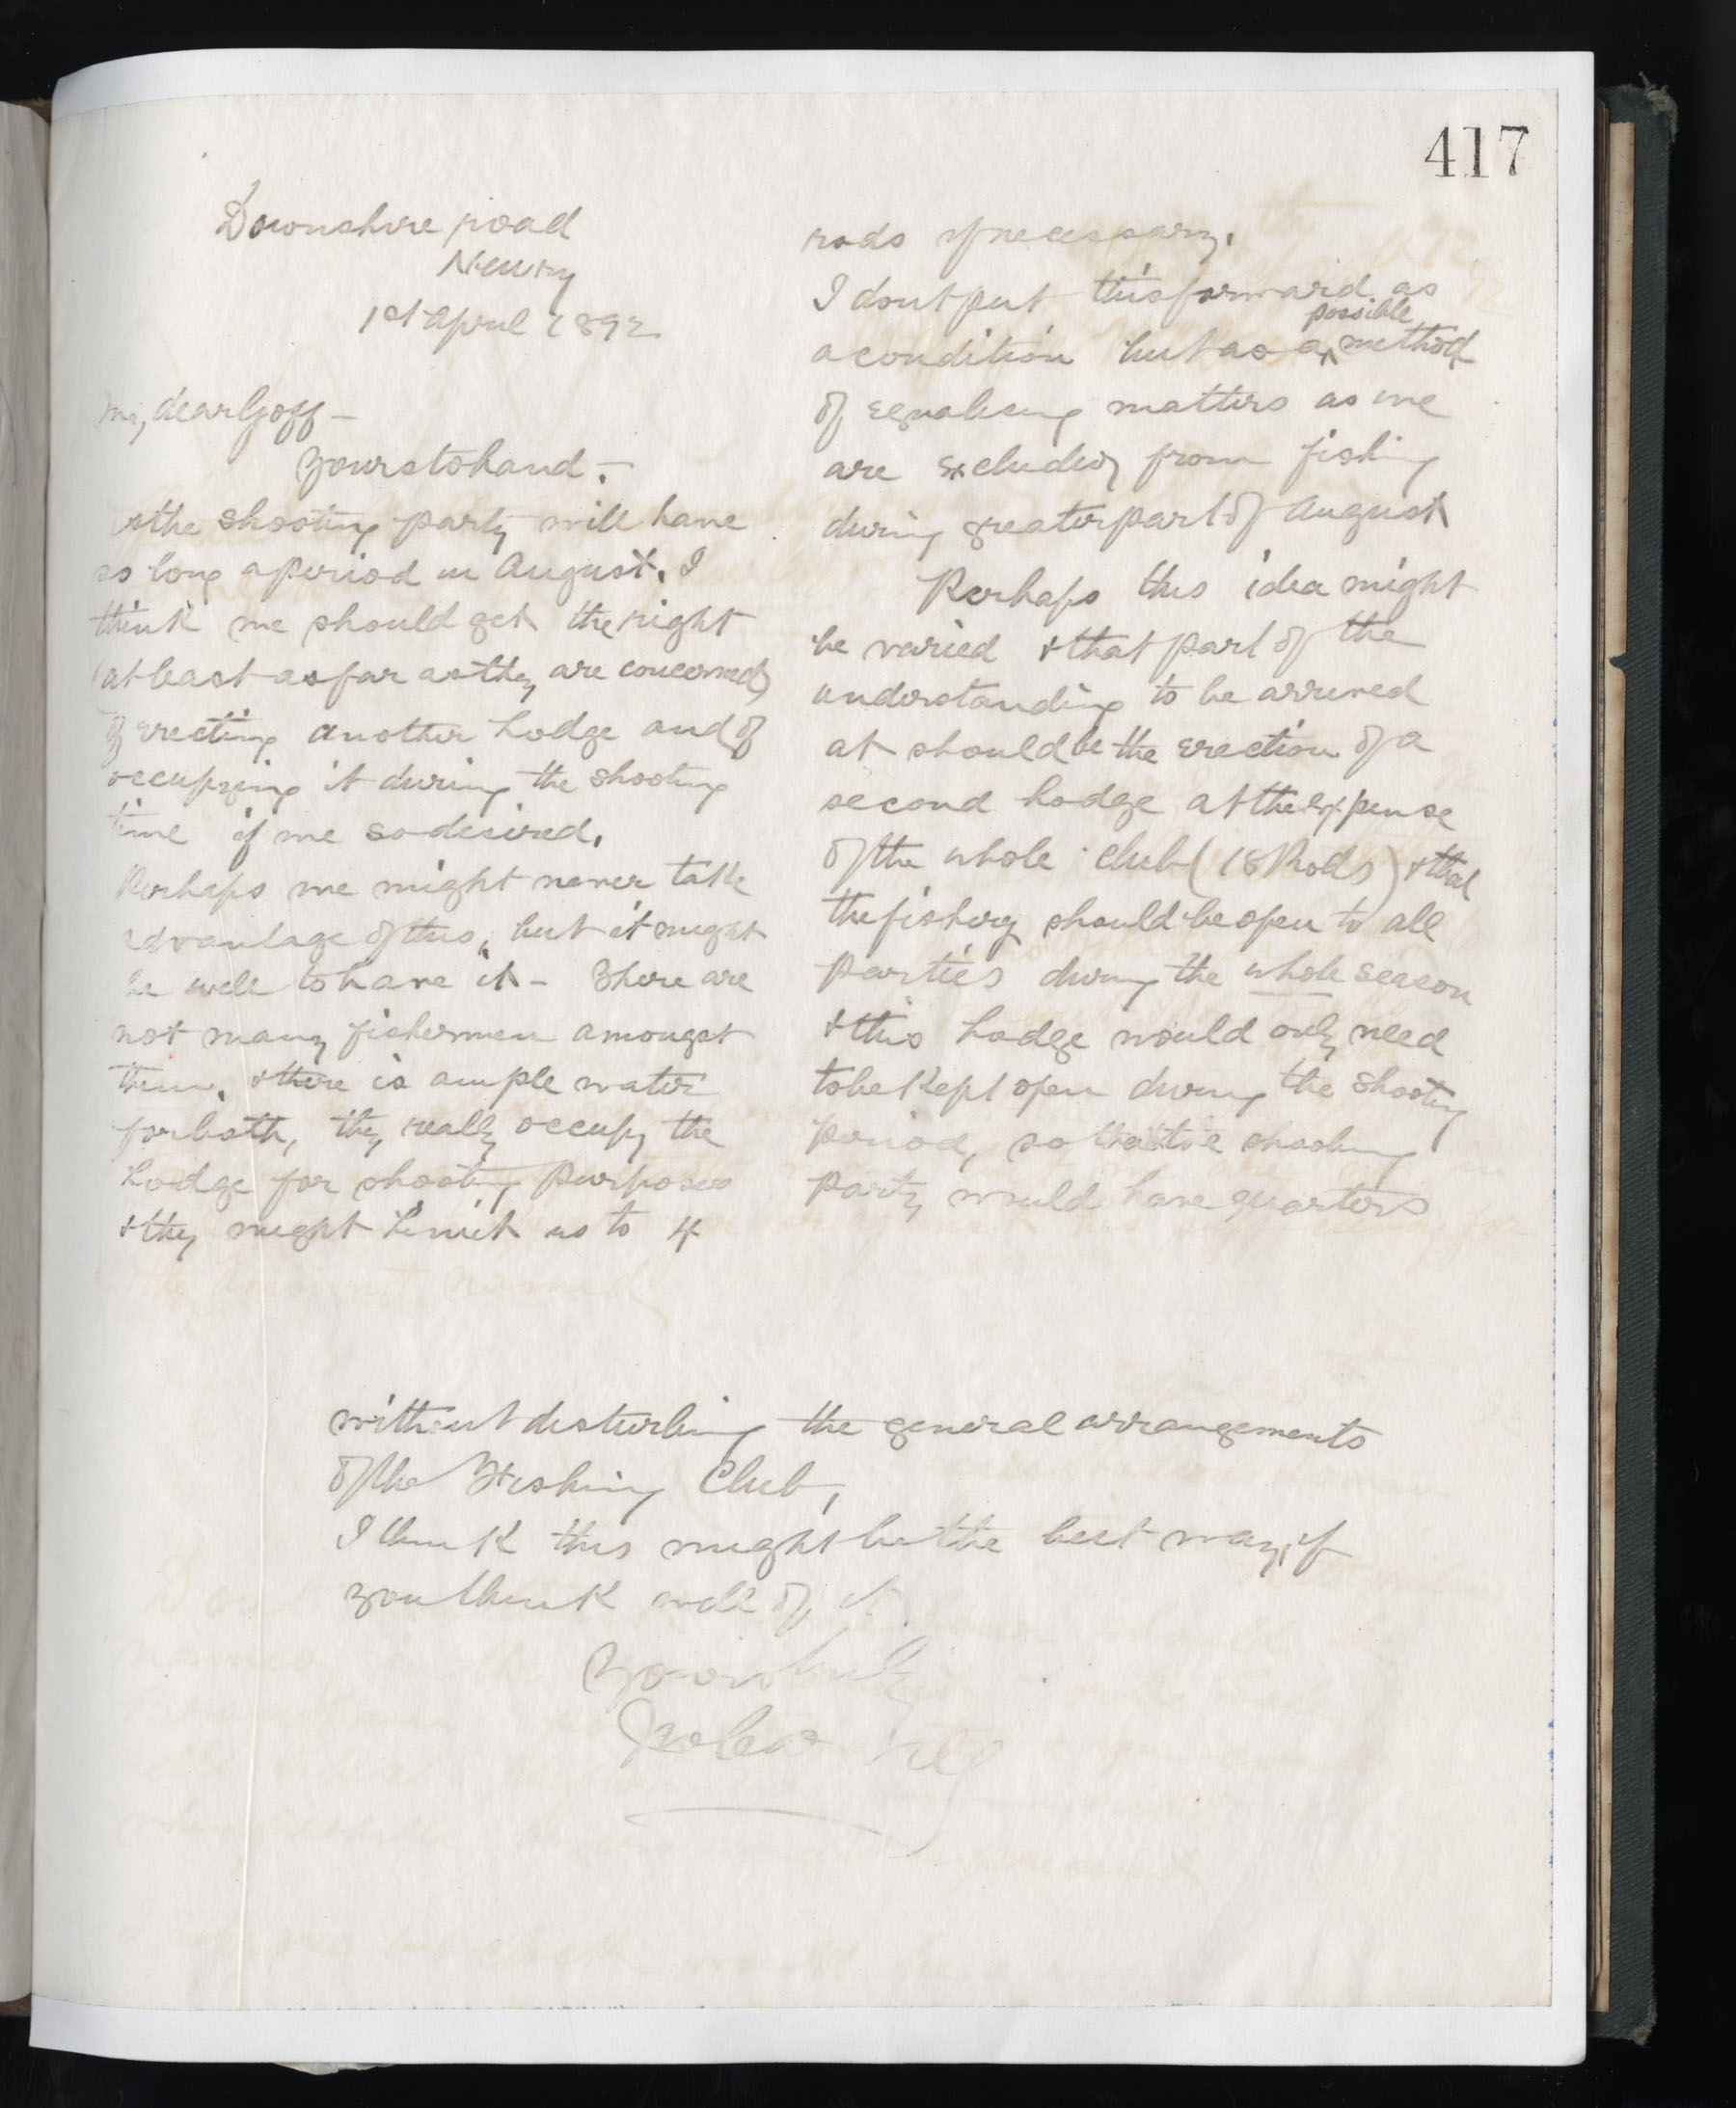 417
Downshire road
Newry
1st April 1892
My dear Goff –
Yours to hand. –
As the shooting party will have
so long a period in August, I
think we should get the right
(at least as far as they are concerned)
of erecting another Lodge and of
occupying it during the shooting
time if we so desired.
Perhaps we might never take
advantage of this, but it might
be well to have it – There are
not many fishermen amongst
them, & there is ample water
for both, they really occupy the
Lodge for shooting purposes
& they might limit us to 4
rods if necessary.
I dont put this forward as
a condition but as a possible method
of equalising matters as we
are excluded from fishing
during greater part of August
Perhaps this idea might
be varied & that part of the
understanding to be arrived
at should be the erection of a
second Lodge at the expense
of the whole Club (18 Rods) & that
the fishing should be open to all
parties during the whole season
& this Lodge would only need
to be kept open during the shooting
period, so that the shooting
party would have quarters
without disturbing the general arrangements
of the Fishing Club,
I think this might be the best way, if
you think well of it
Yours truly